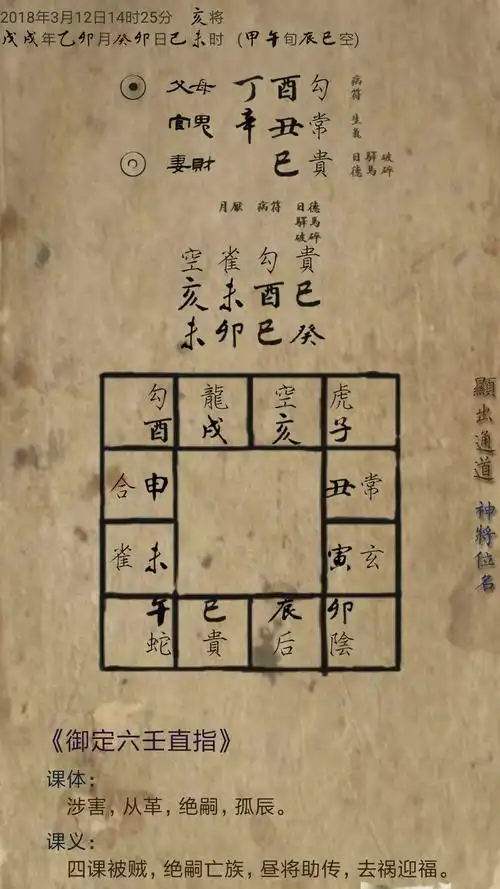 2018年3月12日14时25分 亥将
戊戌年乙卯月癸卯日己未时 (甲午旬辰巳空)
父母 丁酉勾 病符
官鬼 辛丑常 生氣
妻財 巳貴 日德 驛馬 破碎
月厭 病符 日德 驛馬 破碎
空雀勾貴
亥未酉巳
未卯巳癸
勾龍空虎
酉戌亥子
合申 丑常
雀未 寅玄
午巳辰卯
蛇貴后陰
顯出通道 神將位名
《御定六壬直指》
课体:
涉害,从革,绝嗣,孤辰。
课义:
四课被贼,绝嗣亡族,昼将助传,去祸迎福。